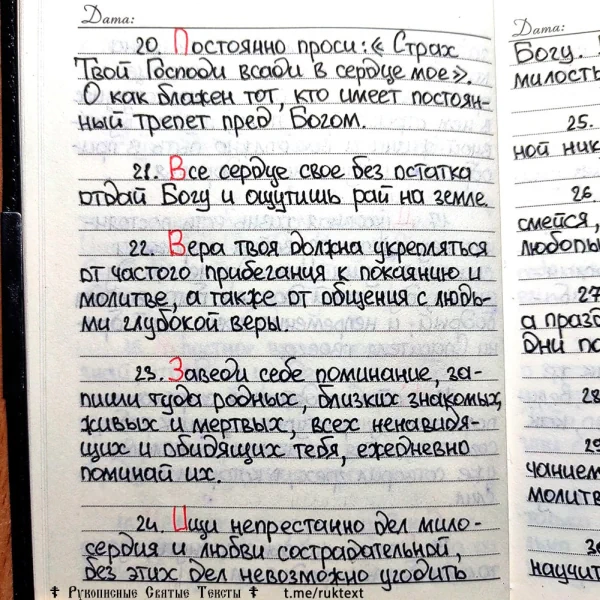 Дата:
20. Постоянно проси: «Страх
Твой Господи всади в сердце мое».
О как блажен тот, кто имеет постоян-
ный трепет пред Богом.
21. Все сердце свое без остатка
отдай Богу и ощутишь рай на земле.
22. Вера твоя должна укрепляться
от частого прибегания к покаянию и
молитве, а также от общения с людь-
ми глубокой веры.
23. Заведи себе поминание, за-
пиши туда родных, близких знакомых,
живых и мертвых, всех ненавидя-
щих и обидящих тебя, ежедневно
поминай их.
24. Ищи непрестанно дел мило-
сердия и любви сострадательной,
без этих дел невозможно угодить
Дата:
Богу.
милость
25.
ной ник
26
смейся,
любопы
27
а празд
дни по
28
29
чанием
молитв
30
научит
☦ Рукописные Святые Тексты ☦ t.me/ruktext